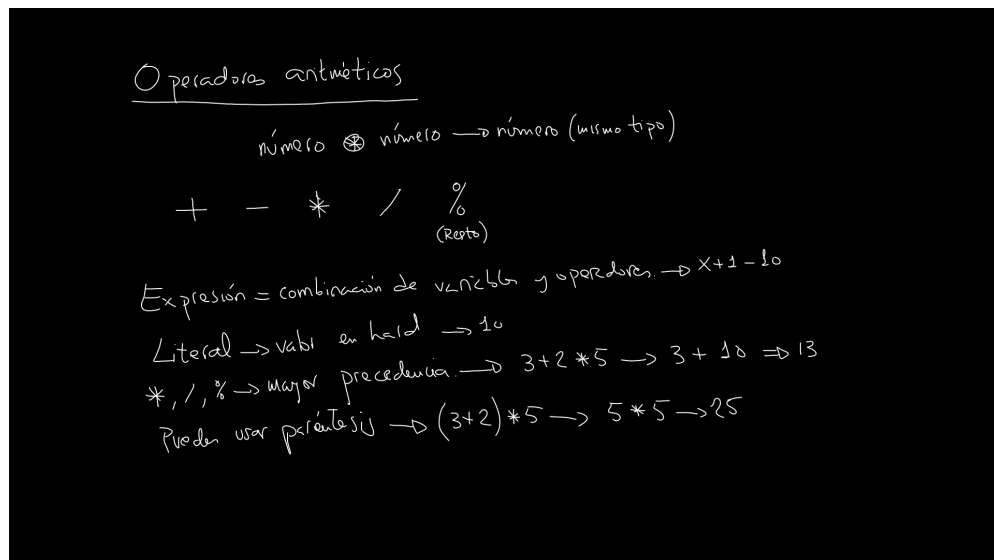 Operadores aritméticos
número ⊛ número → número (mismo tipo)
+ - * / %
(Resto)
Expresión = combinación de variables y operadores → x+1-10
Literal → valor en hard → 10
*, /, % → mayor precedencia → 3+2*5 → 3+10 ⇒ 13
Puedes usar paréntesis → (3+2)*5 → 5*5 → 25